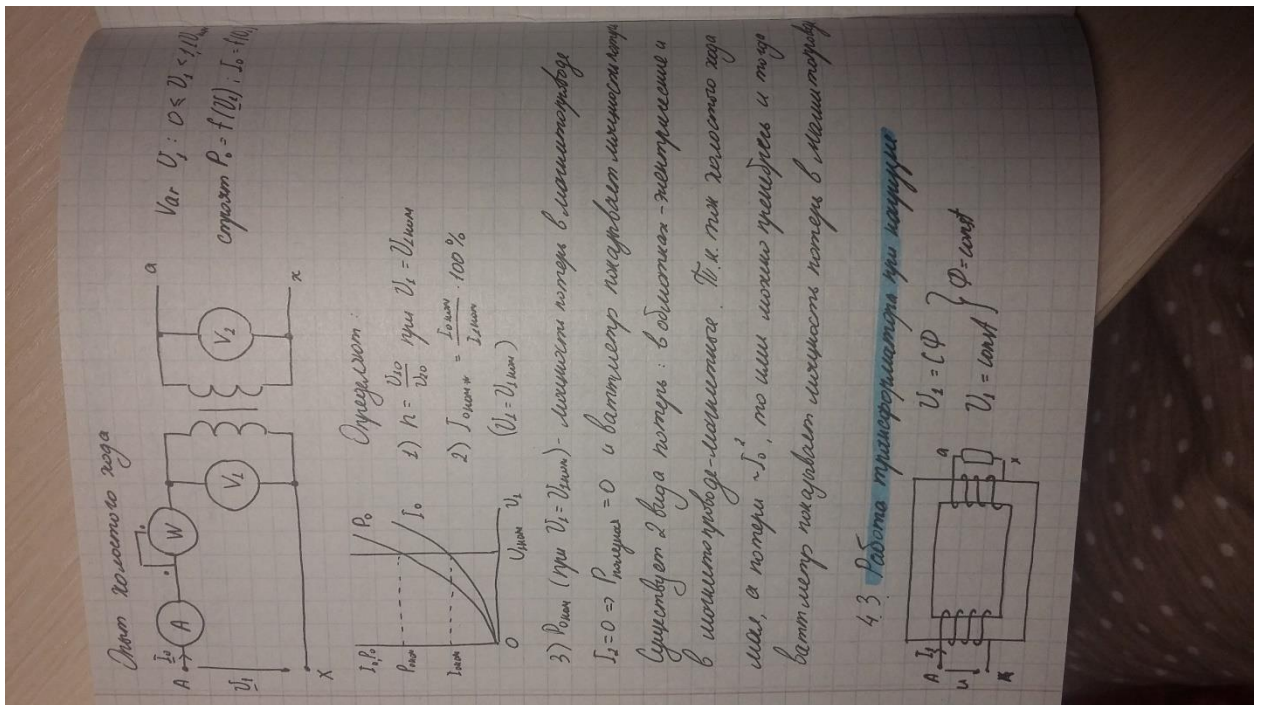 Опыт холостого хода
A I₀ A W V₁ V₂ a
U₁
X x
Var U₁ : 0 ≤ U₁ < 1,1U
строят P₀ = f(U₁) ; I₀ = f(U₁
I₀, P₀
P₀ном
I₀ном
O U₁ном U₁
P₀
I₀
Определяют:
1) n = U₁₀/U₂₀ при U₁ = U₁ном
2) I₀ном* = I₀ном/I₁ном · 100%
(U₁ = U₁ном)
3) P₀ном (при U₁ = U₁ном) - мощность потерь в магнитопроводе
I₂ = 0 => Pполезная = 0 и ваттметр показывает мощность потерь
Существует 2 вида потерь: в обмотках - электрические и
в магнитопроводе - магнитные. Т.к. ток холостого хода
мал, а потери ~I₀², то ими можно пренебречь и тогда
ваттметр показывает мощность потерь в магнитопроводе
4.3 Работа трансформатора при нагрузке
A I₁ a
u
x
U₁ = CФ
U₁ = const } Ф = const